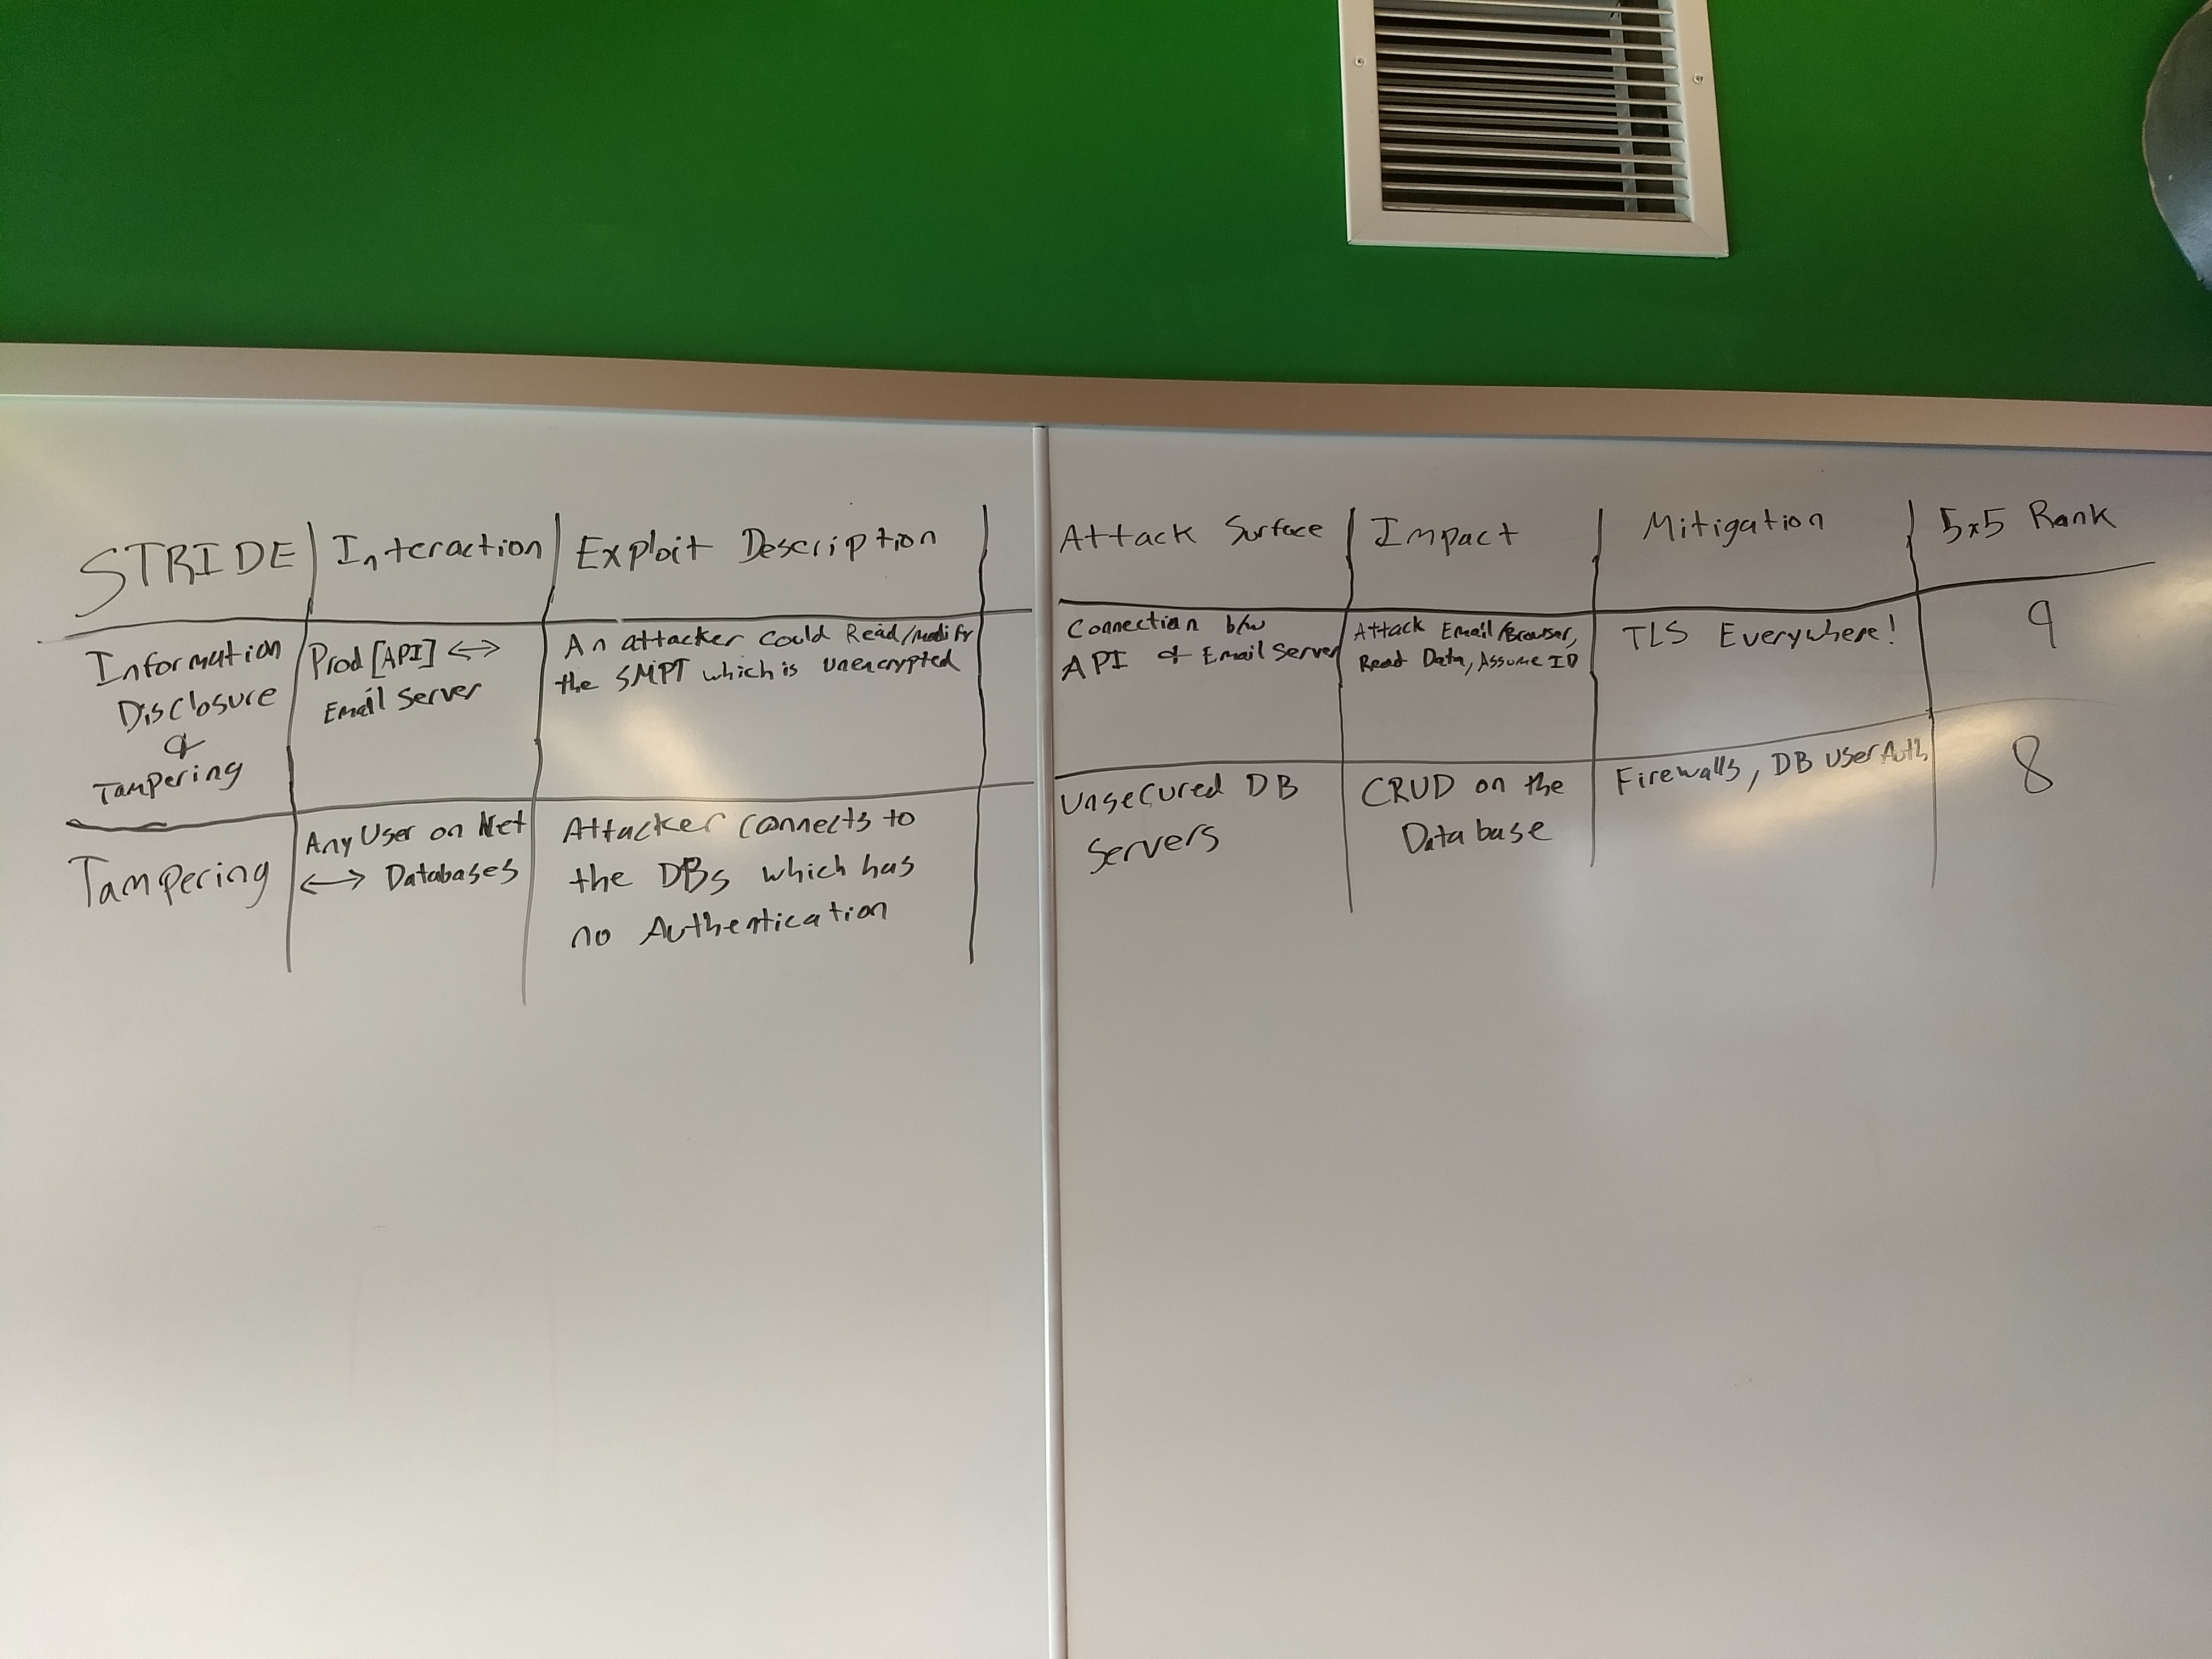 STRIDE Interaction Exploit Description Attack Surface Impact Mitigation 5x5 Rank
Information
Disclosure
&
Tampering
Prod [API] <->
Email Server
An attacker could Read/modify
the SMPT which is unencrypted
Connection b/w
API & Email Server
Attack Email/Browser,
Read Data, Assume ID
TLS Everywhere!
9
Tampering
Any User on Net
<-> Databases
Attacker connects to
the DBs which has
no Authentication
Unsecured DB
Servers
CRUD on the
Database
Firewalls, DB User Auth
8